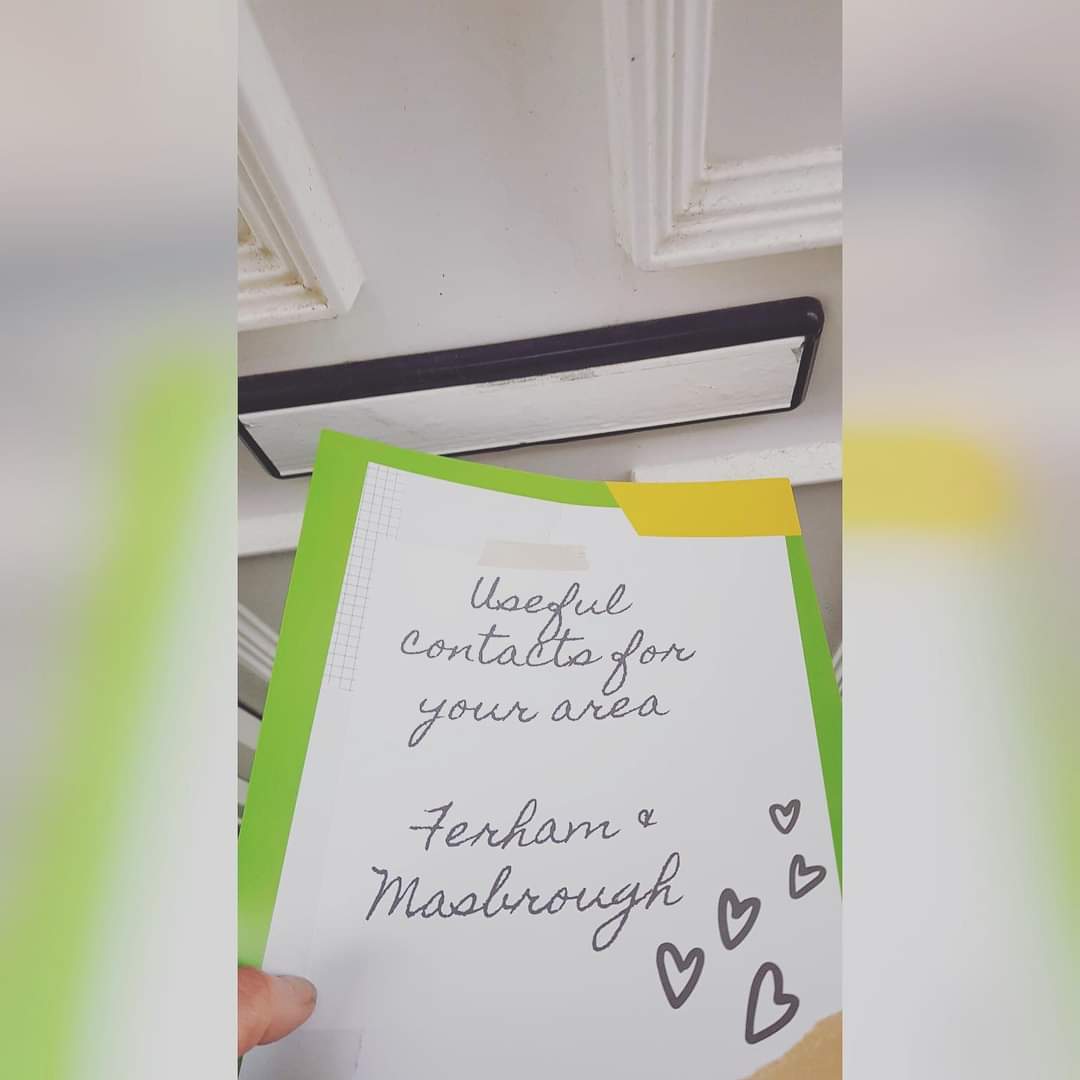 Useful
contacts for
your area
Ferham &
Masbrough